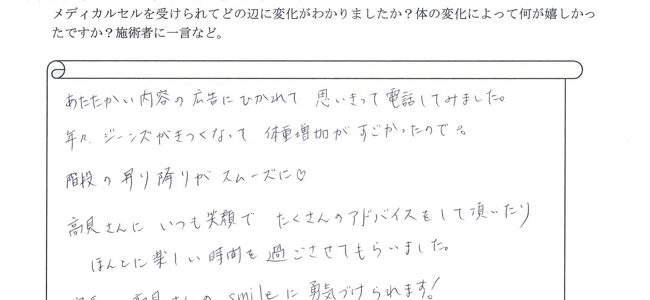 メディカルセルを受けられてどの辺に変化がわかりましたか？体の変化によって何が嬉しかっ
たですか？施術者に一言など。
あたたかい内容の広告にひかれて 思いきって電話してみました。
年々、ジーンズがきつくなって 体重増加がすごかったので。
階段の昇り降りが スムーズに♡
高見さんに いつも笑顔で たくさんのアドバイスをして頂いたり
ほんとに楽しい時間を過ごさせてもらいました。
高見さんの smileに勇気づけられます！